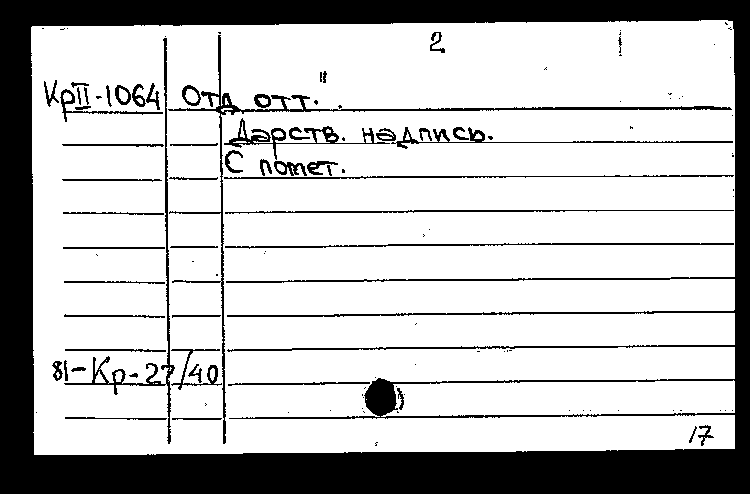 2
КрII-1064 Отд. отт.
Дарств. надпись.
С помет.
81-Кр-27/40
17